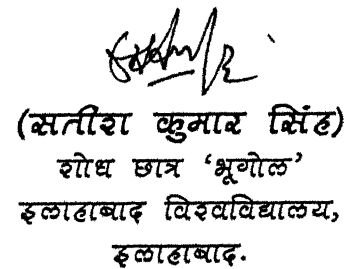 (सतीश कुमार सिंह)
शोध छात्र ‘भूगोल’
इलाहाबाद विश्वविद्यालय,
इलाहाबाद.